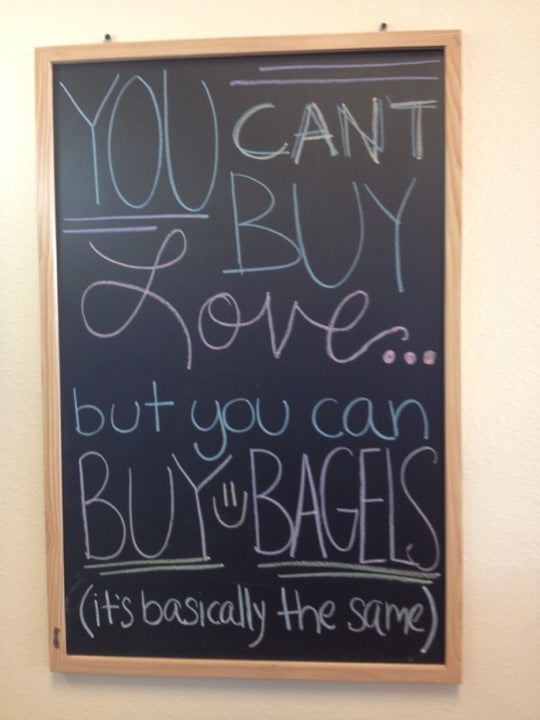 YOU CANT
BUY
Love...
but you can
BUY BAGELS
(it's basically the same)